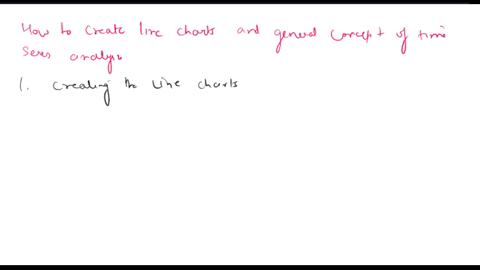 How to create line charts and general concept of time
Series analysis
1. Creating the Line charts